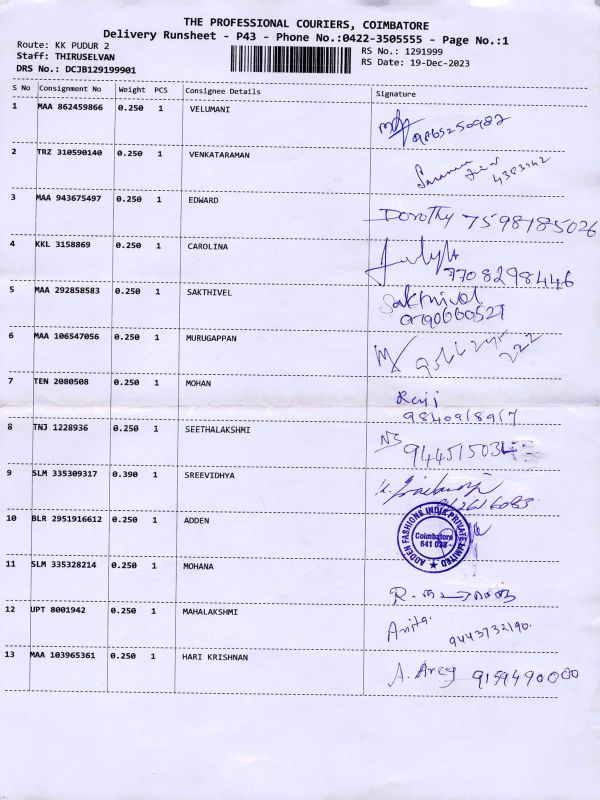 THE PROFESSIONAL COURIERS, COIMBATORE
Delivery Runsheet - P43 - Phone No.:0422-3505555 - Page No.:1
Route: KK PUDUR 2
Staff: THIRUSELVAN
DRS No.: DCJB129199901
RS No.: 1291999
RS Date: 19-Dec-2023
S No Consignment No Weight PCS Consignee Details Signature
1 MAA 862459866 0.250 1 VELUMANI
9865250982
2 TRZ 310590140 0.250 1 VENKATARAMAN
3 MAA 943675497 0.250 1 EDWARD
Dorothy 7598185026
4 KKL 3158869 0.250 1 CAROLINA
7708298446
5 MAA 292858583 0.250 1 SAKTHIVEL
Sakthivel
6 MAA 106547056 0.250 1 MURUGAPPAN
7 TEN 2080508 0.250 1 MOHAN
Raji
9840918917
8 TNJ 1228936 0.250 1 SEETHALAKSHMI
NS
9 SLM 335309317 0.390 1 SREEVIDHYA
10 BLR 2951916612 0.250 1 ADDEN
ADDEN FASHIONS INDIA PRIVATE LIMITED
Coimbatore
641 038
11 SLM 335328214 0.250 1 MOHANA
12 UPT 8001942 0.250 1 MAHALAKSHMI
Anita
9443732190
13 MAA 103965361 0.250 1 HARI KRISHNAN
9159490000